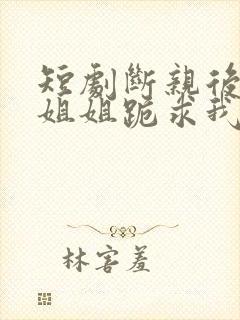 短劇斷親後
姐姐跪求我
林害羞